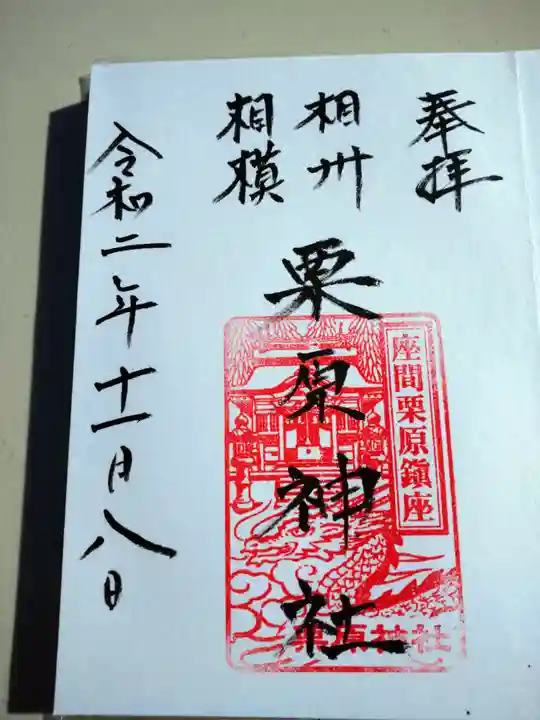 奉拝
相州
相模
栗原神社
座間栗原鎮座
栗原神社
令和二年十一月八日